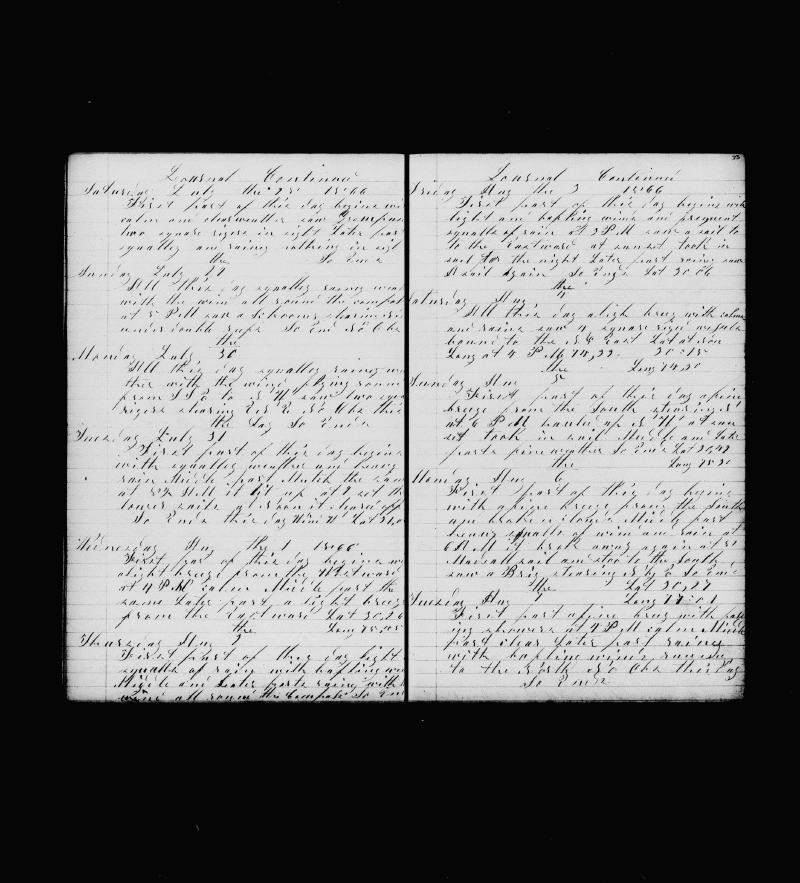 Journal Continued
Saturday July the 28 1866
First part of this day begins wi
calm and clear weather saw grampus
two square rigers in sight Later part
squally and rainy nothing in sigt
the So Ends
Sunday July 29
All this day squally rainy wea
with the wind all round the compas
at 5 PM saw a schooner stearing
under double reefs So End No Obs
the
Monday July 30
All this day squally rainy we
ther with the wind flying roun
from SSE to N W saw two squa
rigers stearing No Obs this
the Day So Ends
Tuesday July 31
First part of this day begins
with squally weather and heavy
rain Middle part Much the same
at AM it let up at set the
lower sails at Noon it
So Ends this day Wind W Lat
Wednesday Aug the 1 1866
First part of this day begins wi
a light breeze from the Westward
at 4 PM calm Middle part the
same Later part a light breeze
from the Eastward Lat 30,26
the Long 75,45
Thursday Aug
First part of this day light
squalls of rain with baffling wi
Middle and Later parts rainy with
wind all round the Compass So End
33
Journal Continued
Friday Aug the 3 1866
First part of this day begins with
light and bafling wind and frequent
squalls of rain at 2 PM saw a sail to
to the Eastward at sunset took in
sail for the night Later part rainy saw
A sail again So Ends Lat 30 06
the
Saturday Aug 4
All this day a ligh breze with calms
and rains saw 4 square riged vessels
bound to the N East Lat at Non
Long at 4 PM 74,22 30=15
the Long 74 20
Sunday Aug 5
First part of this day a fine
breeze from the South stearing
at 6 PM hauled up N W at sun
set took in sail Middle and Later
parts fine weather So Ends Lat 30,42
the Long 75 20
Monday Aug 6
First part of this day begins
with a fine breeze from the South
and broken clouds Middle part
heavy squalls of wind and rain at
6 AM it broke away again at
Made all sail and stood to the South
saw a Brig stearing So Ends
the Lat 30,27
Tuesday Aug 7 Long 77=01
First part a fine breg with
ing showers at 4 PM calm Middle
part clear Later part rainy
with bafling winds
to the North No Obs this Day
So Ends